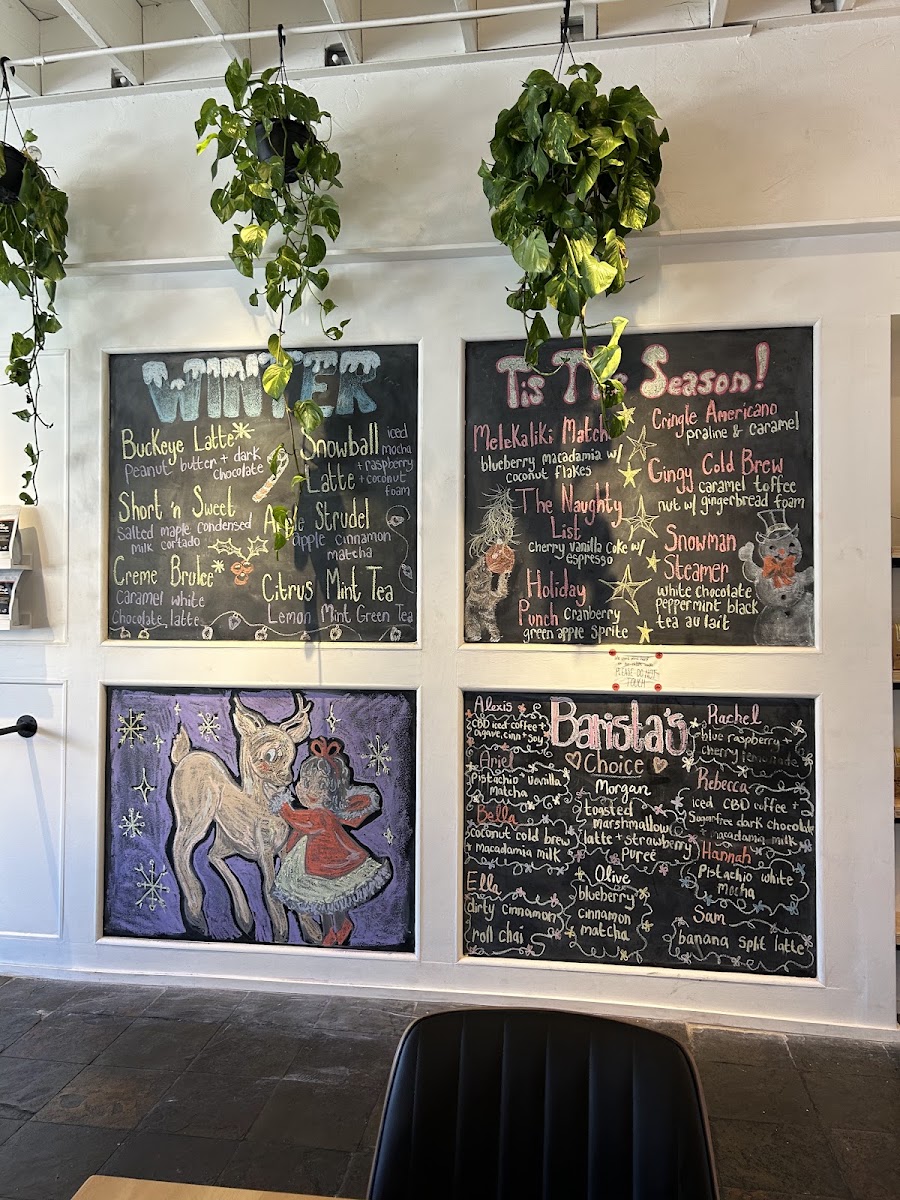 WINTER
Buckeye Latte
peanut butter + dark
chocolate
Short 'n Sweet
Salted maple condensed
milk cortado
Creme Brulee
Caramel white
Chocolate latte
Snowball
Latte
iced
mocha
+ raspberry
+ coconut
foam
Strudel
apple cinnamon
matcha
Citrus Mint Tea
Lemon Mint Green Tea
Tis The Season!
MeleKaliKi Matcha
blueberry macadamia w/
coconut flakes
The Naughty
List
cherry vanilla coke w/
espresso
Holiday
Punch cranberry
green apple sprite
Cringle Americano
praline & caramel
Gingy Cold Brew
caramel toffee
nut w/ gingerbread foam
Snowman
Steamer
white chocolate
peppermint black
tea au lait
PLEASE DO NOT
TOUCH
Barista's
Choice
Alexis
CBD iced coffee +
agave, cinn + soy
Ariel
Pistachio + vanilla
matcha
Bella
coconut cold brew
+ macadamia milk
Ella
dirty cinnamon
roll chai
Morgan
toasted
marshmallow
latte + strawberry
Pureé
Olive
blueberry
cinnamon
matcha
Rachel
blue raspberry +
cherry lemonade
Rebecca
iced CBD coffee +
Sugarfree dark chocolate
+ macadamia milk
Hannah
Pistachio white
mocha
Sam
banana split latte